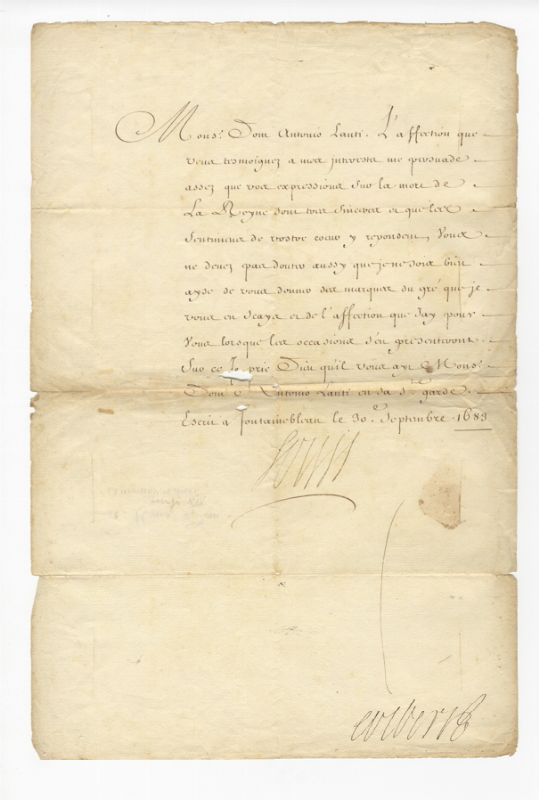 Mons.r Dom Antonio Lanti. L'affection que
vous tesmoignez a mes interests me persuade
assez que vos expressions sur la mort de
La Reyne sont tres sinceres et que les
sentimens de vostre coeur y reponsent, Vous
ne devez pas douter aussy que je ne sois bien
ayse de vous donner des marques du gré que je
vous en scays et de l'affection que J'ay pour
Vous lorsque les occasions s'en presenteront
Sur ce Je prie Dieu qu'il vous ayt Mons.r
Dom Antonio Lanti en sa s.te garde
Escrit a Fontainebleau le 30.e Septembre 1683
Louis
Colbert